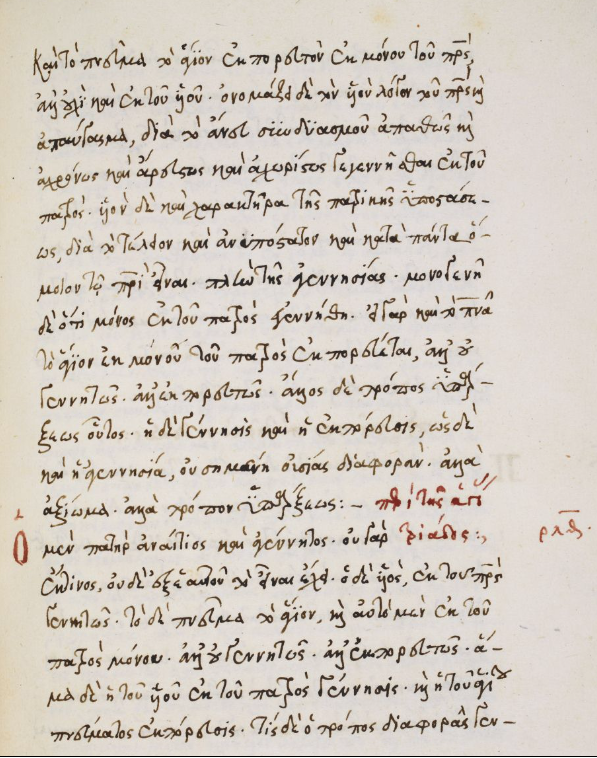 Καὶ τὸ πνεῦμα τὸ ἅγιον ἐκπορευτὸν ἐκ μόνου τοῦ πρς,
ἀλλ' οὐχὶ καὶ ἐκ τοῦ υἱοῦ· ὀνομάζει δὲ τὸν υἱὸν λόγον τοῦ πρς καὶ
ἀπαύγασμα, διὰ τὸ ἄνευ συνδυασμοῦ ἀπαθῶς καὶ
ἀχρόνως καὶ ἀρεύστως καὶ ἀχωρίστως γεγεννῆσθαι ἐκ τοῦ
πατρός· υἱὸν δὲ καὶ χαρακτῆρα τῆς πατρικῆς ὑποστάσε-
ως, διὰ τὸ τέλειον καὶ ἐνυπόστατον καὶ κατὰ πάντα ὅ-
μοιον τῷ πρὶ εἶναι· πλὴν τῆς ἀγεννησίας· μονογενῆ
δὲ ὅτι μόνος ἐκ τοῦ πατρὸς ἐγεννήθη· εἰ γὰρ καὶ τὸ πνα
τὸ ἅγιον ἐκ μόνου τοῦ πατρὸς ἐκπορεύεται, ἀλλ' οὐ
γεννητῶς· ἀλλ' ἐκπορευτῶς· ἄλλος δὲ τρόπος ὑπάρ-
ξεως οὗτος· ἡ δὲ γέννησις καὶ ἡ ἐκπόρευσις, ὡς δὲ
καὶ ἡ ἀγεννησία, οὐ σημαίνει οὐσίας διαφοράν· ἀλλὰ
ἀξίωμα· ἀλλὰ τρόπον ὑπάρξεως:– περὶ τῆς ἁγίου
Ὁ μὲν πατὴρ ἀναίτιος καὶ ἀγέννητος· οὐ γὰρ τριάδος:, ρλθ.
ἔκ τινος, οὐδὲ ἐξ ἑαυτοῦ τὸ εἶναι ἔχει· ὁ δὲ υἱὸς, ἐκ τοῦ πρς
γεννητῶς· τὸ δὲ πνεῦμα τὸ ἅγιον, καὶ αὐτὸ μὲν ἐκ τοῦ
πατρὸς μόνου· ἀλλ' οὐ γεννητῶς· ἀλλ' ἐκπορευτῶς· ἅ-
μα δὲ ἡ τοῦ υἱοῦ ἐκ τοῦ πατρὸς γέννησις· καὶ ἡ τοῦ ἁγίου
πνεύματος ἐκπόρευσις· τίς δὲ ὁ τρόπος διαφορᾶς γεν–